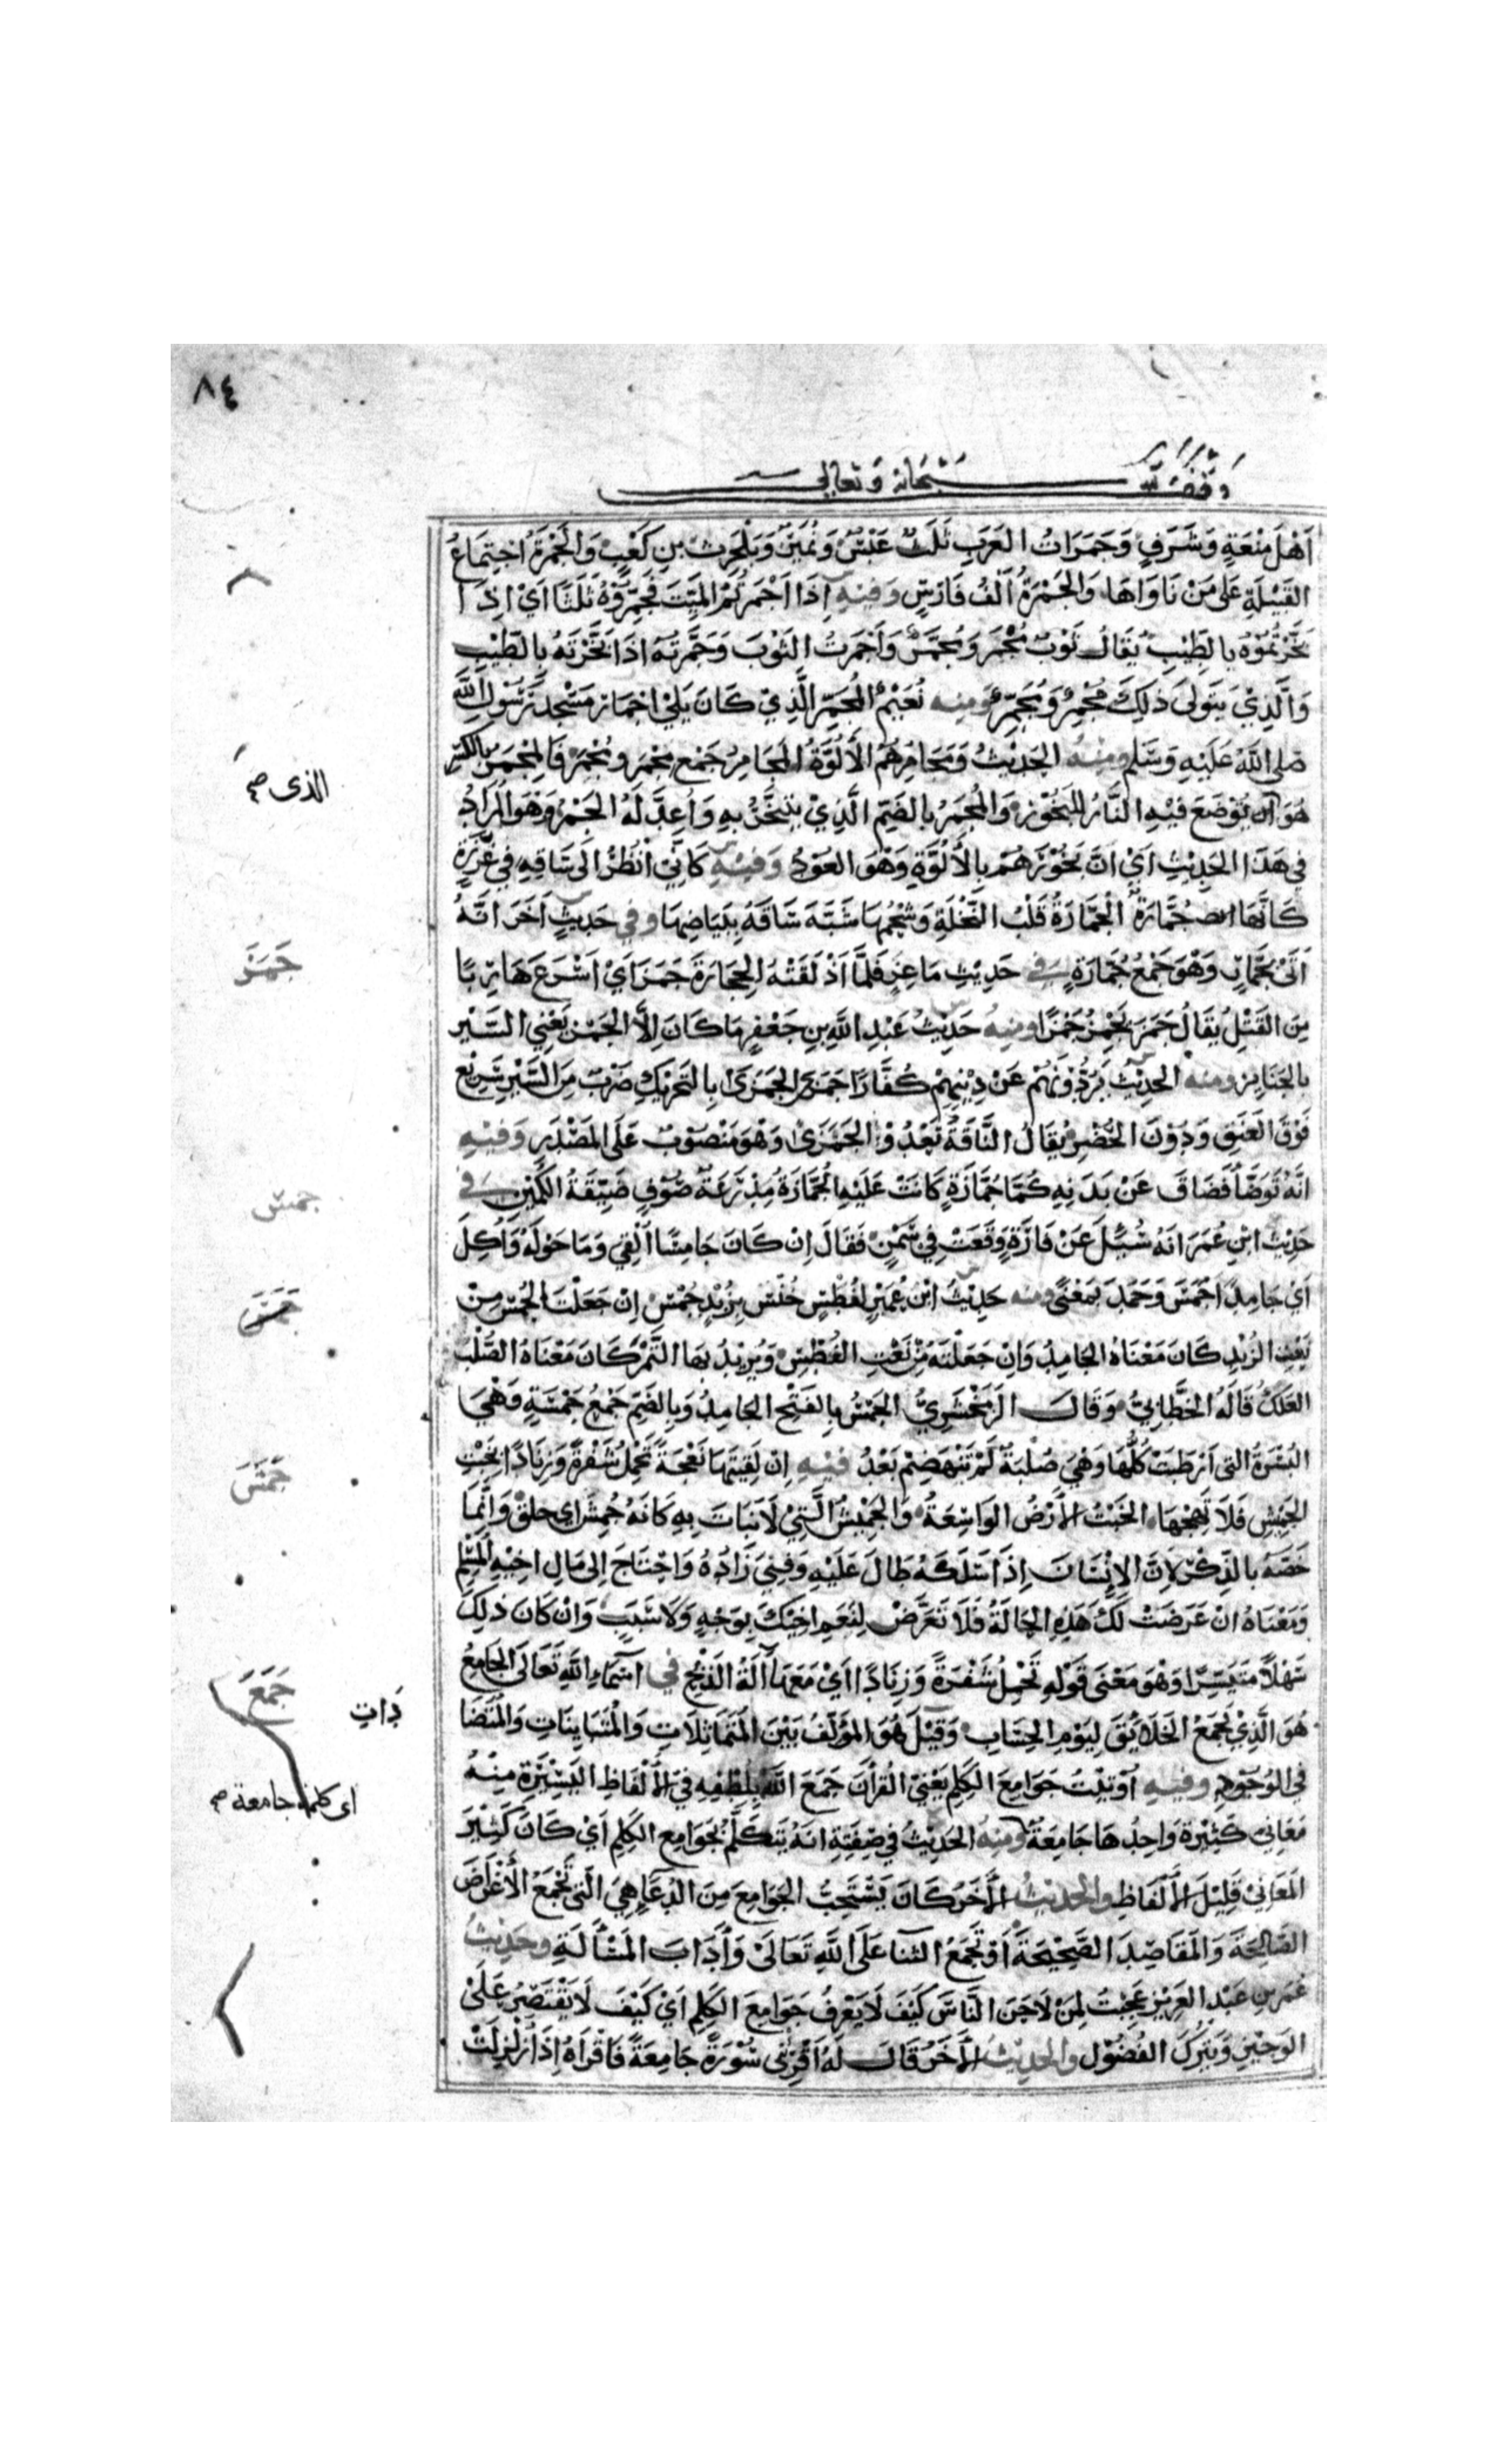 ٨٤
وقف لله سبحانه وتعالى
اَهْلَ مَنْعَةٍ وَشَرَفٍ وَجَمَرَاتُ العَرَبِ ثَلَثٌ عَبْسٌ وَنُمَيْرٌ وَبَلْحَرِثِ بنِ كَعْبٍ وَالْجَمْرَةُ اجْتِمَاعُ
القَبِيْلَةِ عَلَى مَنْ نَاوَاهَا وَالجَمْرَةُ اَلْفُ فَارِسٍ وَفِيْهِ اِذَا اَجْمَرْتُمُ المَيِّتَ فَجَمِّرُوْهُ ثَلَثًا اَيْ اِذَا
بَخَّرْتُمُوْهُ بِالطِّيْبِ يُقَالُ ثَوْبٌ مُجْمَرٌ وَمُجَمَّرٌ وَاَجْمَرتُ الثَوْبَ وَجَمَّرتُهُ اذَا بَخَّرْتَهُ بِالطِّيْبِ
وَالَّذِيْ يَتَوَلَّى ذَلِكَ مُجْمِرٌ وَمُجَمِّرٌ وَمِنه نُعَيْمُ المُجَمِّرُ الَّذِيْ كَانَ يَلِيْ اجْمَارَ مَسْجِدِ رَسُوْلِ اللَّهِ
صَلى اللَّهُ عَلَيْهِ وَسَلم وَمِنْهُ الحَدِيْثُ وَمَجَامِرُهُمُ الأَلُوَّةُ المَجَامِرُ جَمْع مِجْمَر ومُجْمَر فَالمِجْمَرُ بِالكَسْرِ
هُوَ الَّذي يُوْضَعَ فِيْهِ النَّارُ لِلْبَخُوْرِ وَالمُجْمَرُ بِالضَمِّ الَّذِيْ يتبَخَّرُ بِهِ وَاُعِدَّ لَهُ الجَمْرُ وَهْوَ المُرَادُ
فِي هَذَا الحَدِيْثِ اَيْ اَنَّ بَخُوْرَهُمْ بِالأَلُوَّةِ وَهْوَ العُوْدُ وَفِيْهِ كَاَنِّيْ اَنْظُرُ اِلَى سَاقِهِ فِي غَرْزِهِ
كَاَنَّهَا جُمَّارَةٌ الْجُمَّارَةُ قَلْبُ النَّخْلَةِ وَشَحْمُهَا شَبَّهَ سَاقَهُ بِبَيَاضِهَا وفي حَدِيثٍ اَخَرَ اَنَّهُ
اَتَى بِجُمَّارٍ وَهْوَ جَمْعُ جُمَّارَةٍ في حَدِيْثِ مَاعِزٍ فَلَمَّا اَذْلَقَتْهُ الحِجَارَةَ جَمَزَ اَيْ اَسْرَعَ هَارِبًا
مِنَ القَتْلِ يُقَالُ جَمَزَ يَجْمِزُ جَمْزًا ومِنهُ حَدِيْثُ عَبْدِ اللَّهِ بنِ جَعْفَرٍ مَا كَانَ اِلاَّ الجَمْزُ يَعْنِي السَّيْر
بِالجَنَايِز ومنهُ الحَدِيْثُ يَرُدُّوْنَهُمْ عَنْ دِيْنِهِمْ كُفَّارًا جَمَزَى الجَمَزَى بِالتَحْرِيْكِ ضَرْبٌ مِنَ السَّيْرِ سَرِيْع
فَوْقَ العَنَقِ وَدُوْنَ الحُضْرِ يُقَالُ النَّاقَةُ تَعْدُوْ الجَمَزَى وَهْوَ مَنْصُوْبٌ عَلَى المَصْدَرِ وَفِيْهِ
اَنَّهُ تَوَضَّأَ فَضَاقَ عَنْ يَدَيهِ كُمَّا جُمَّازَةٍ كَانَتْ عَلَيْهِ الجُمَّازَةُ مِدْرَعَةُ صُوْفٍ ضَيِّقَةُ الكُمَّيْنِ في
حَدِيْث ابنِ عُمَرَ اَنَهُ سُئِلَ عَنْ فَارَةٍ وَقَعَتْ فِي سَمْنٍ فَقَالَ اِنْ كَانَ جَامِسًا اُلْقِيَ وَمَا حَوْلَهُ وَاُكِلَ
اَيْ جَامِدًا جَمَسَ وَجَمَدَ بِمَعْنًى ومنه حَدِيْثُ ابْنِ عُمَيْرٍ لفُطْسٍ خُنْسٍ بِزُبْدٍ جُمْسٍ اِنْ جَعَلْتَ الجُمْسَ مِنْ
نَعْتِ الزُبْدِ كَانَ مَعْنَاهُ الجَامِدُ وَاِنْ جَعَلْتَهُ مِنْ نَعْتِ الفُطْسِ وَيُرِيْدُ بِهَا التَّمْرَ كَانَ مَعْنَاهُ الصُّلْبَ
العَلِكُ قَالَهُ الخَطَّابِيُّ وَقَالَ الزَمَخْشَرِيُّ الجَمْسُ بِالفَتْحِ الجَامِدُ وَبِالضَمِّ جَمْعُ جُمْسَةٍ وَهْيَ
البُسْرَةُ التِى اَرْطَبَتْ كُلُّهَا وَهْيَ صُلْبَةٌ لَمْ تَنْهَضِمْ بَعْدُ فِيْهِ اِنْ لَقِيْتَهَا نَعْجَةً تَحْمِلُ شَفْرَةً وَزِنَادًا بِخَبْتِ
الجَمِيْشِ فَلاَ تَهِجْهَا الخَبْتُ الأَرْضُ الوَاسِعَةُ وَالجَمِيْشُ الَّتِيْ لاَ نَبَاتَ بِهِ كَانَهُ جُمِشَ اى حلقَ وَاِنَّمَا
خَصَّهُ بِالذِّكْرِ لاِنَّ الاِنْسَانَ اِذَا سَلَكَهُ طَالَ عَلَيْهِ وَفَنِيَ زَادُهُ وَاحْتَاجَ اِلى مَالِ اخِيْهِ المُسْلِمِ
وَمَعْنَاهُ انْ عَرَضَتْ لَكَ هَذِهِ الحَالَةُ فَلاَ تَعَرَّضْ لِنَعَمِ اخِيْكَ بِوَجْهٍ وَلاَ سَبَبٍ وَانْ كَانَ ذَلِكَ
سَهْلاً مُتَيَسِّرًا وَهْوَ مَعْنَى قَوْلِهِ تَحْمِلُ شَفْرَةً وَزِنَادًا اَيْ مَعَهَا آلَةُ الذَبْحِ في اَسْمَاءِ اللهِ تَعَالَى الجَامِعُ
هُوَ الَّذِيْ يَجْمَعُ الخَلاَئِقَ لِيَوْمِ الحِسَابِ وَقِيْلَ هُوَ المُؤَلِّفُ بَيْنَ المُتَمَاثِلاَتِ وَالْمُتَبَايِنَاتِ وَالمُتَضَا
فى الوُجُوْدِ وفِيْهِ اُوْتِيْتُ جَوَامِعَ الكَلِمِ يَعْنِي القُرْآنَ جَمَعَ اللَّهُ بِلُطْفِهِ فِي الأَلْفَاظِ اليَسِيْرَةِ مِنْهُ
مَعَانِيَ كَثِيْرَة وَاحِدُهَا جَامِعَةٌ ومِنْهُ الحَدِيْثُ فِي صِفَتِهِ اَنَهُ يَتَكَلَّمُ بِجَوَامِعِ الكَلِمِ اَيْ كَانَ كَثِيْرَ
المَعَانِيْ قَلِيْلَ الأَلْفَاظِ والحَدِيْثُ الأَخَرُ كَانَ يَسْتَحِبُّ الجَوَامِعَ مِنَ الدُعَاءِ هِيَ الَّتي تَجْمَعُ الأَغْرَاضَ
الصَّالِحَةَ وَالمَقَاصِدَ الصَّحِيْحَةَ اَوْ تَجْمَعُ الثَنَا عَلَى اللَّهِ تَعَالَى وَآدَابَ المَسْأَلَةِ وحَدِيْثُ
عُمَرَ بنِ عَبْدِ العَزِيْزِ عَجِبْتُ لِمَنْ لاَحَنَ النَّاسَ كَيْفَ لاَ يَعْرِفُ جَوَامِعَ الكَلِمِ اَيْ كَيْفَ لاَ يَقْتَصِرُ عَلَى
الوَجِيْزِ وَيَتْرُكَ الفُضُوْل والحَدِيْثُ الأَخَرُ قَالَ لَهُ اَقْرِئْنِى سُوْرَةً جَامِعَةً فَاقْرَاهُ اِذَا زُلْزِلَتْ
الذى صح
جَمَزَ
جمس
جَمَشَ
جَمَعَ
دَاتِ
اى كلمة جامعة صح